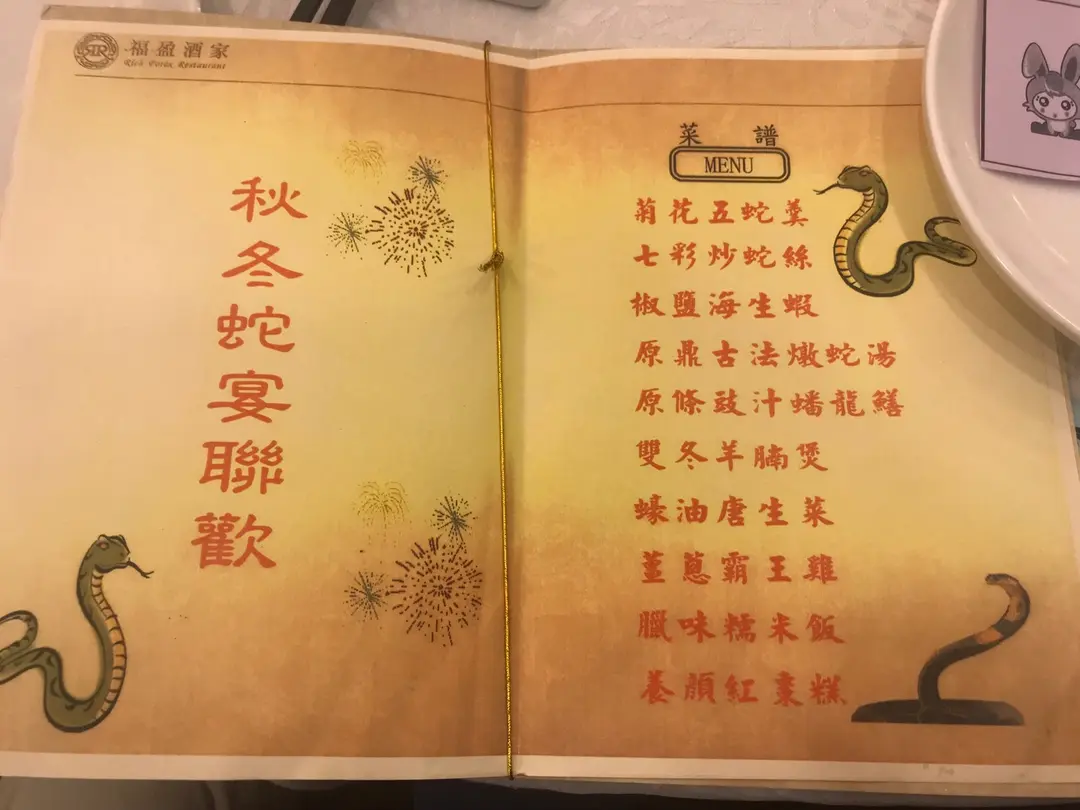 福盈酒家
Rich Foron Restaurant
秋冬蛇宴聯歡
菜譜
MENU
菊花五蛇羹
七彩炒蛇絲
椒鹽海生蝦
原鼎古法燉蛇湯
原條豉汁蟠龍鱔
雙冬羊腩煲
蠔油唐生菜
薑蔥霸王雞
臘味糯米飯
養顏紅棗糕